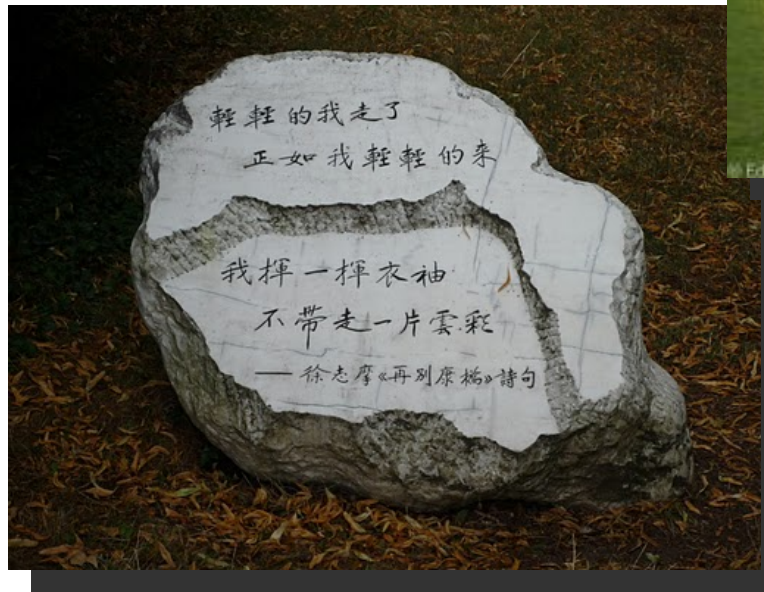 輕輕的我走了
正如我輕輕的来
我揮一揮衣袖
不帶走一片雲彩
—— 徐志摩《再别康橋》詩句